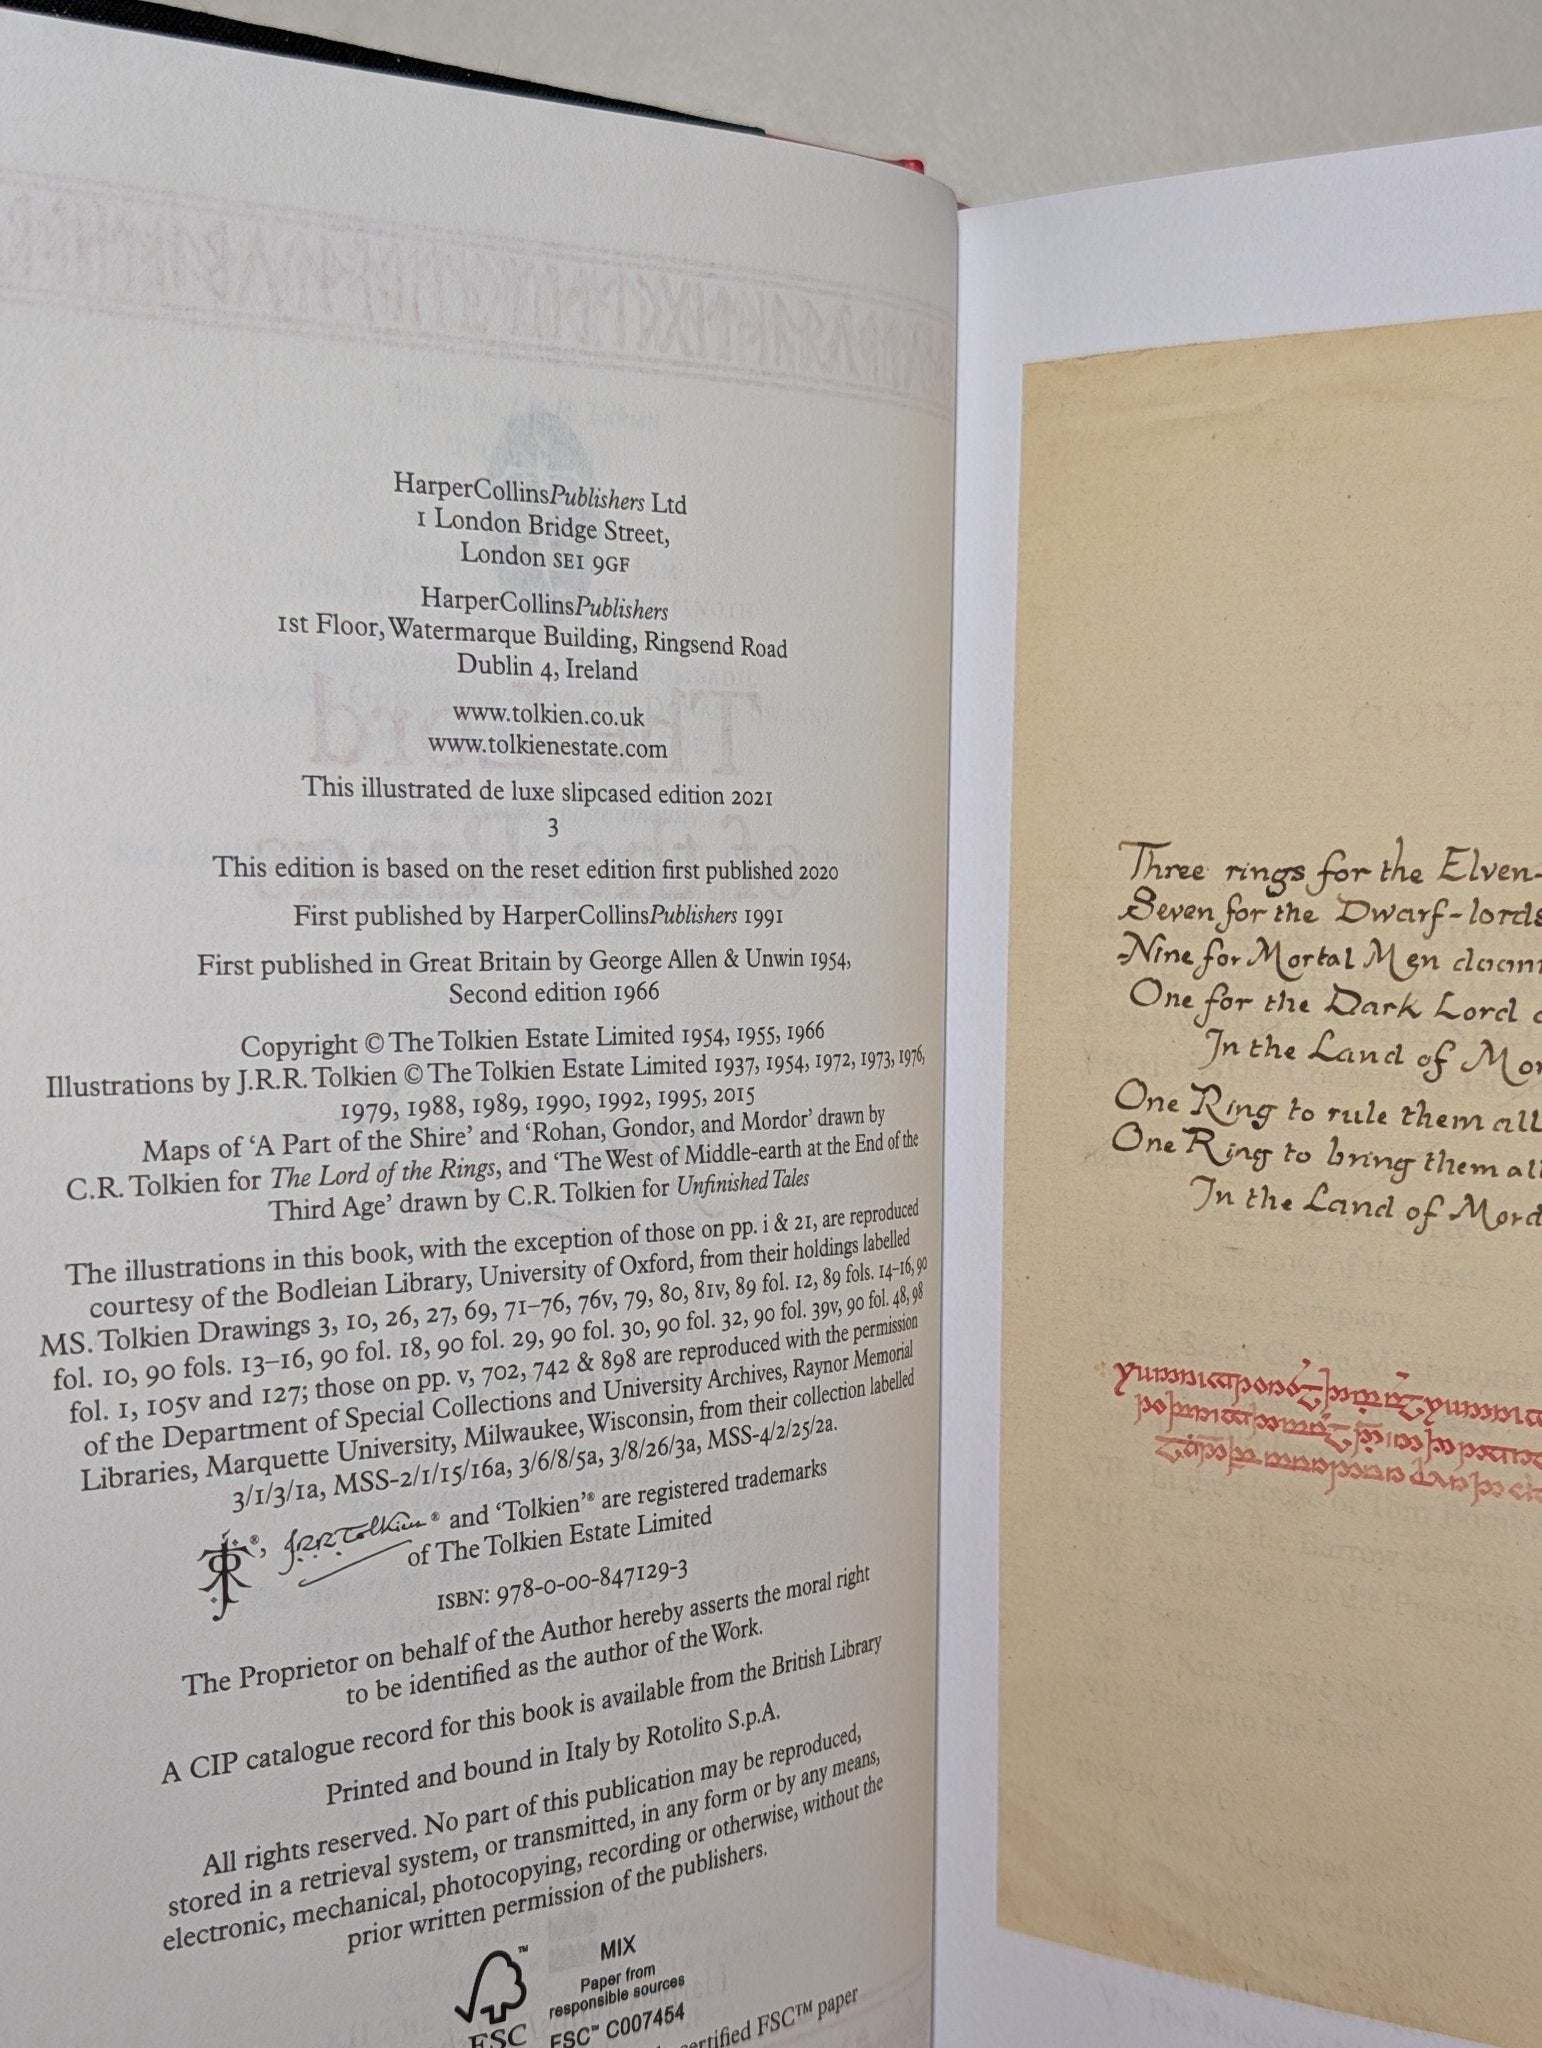 HarperCollinsPublishers Ltd
1 London Bridge Street,
London SE1 9GF
HarperCollinsPublishers
1st Floor, Watermarque Building, Ringsend Road
Dublin 4, Ireland
www.tolkien.co.uk
www.tolkienestate.com
This illustrated de luxe slipcased edition 2021
3
This edition is based on the reset edition first published 2020
First published by HarperCollinsPublishers 1991
First published in Great Britain by George Allen & Unwin 1954,
Second edition 1966
Copyright © The Tolkien Estate Limited 1954, 1955, 1966
Illustrations by J.R.R. Tolkien © The Tolkien Estate Limited 1937, 1954, 1972, 1973, 1976,
1979, 1988, 1989, 1990, 1992, 1995, 2015
Maps of ‘A Part of the Shire’ and ‘Rohan, Gondor, and Mordor’ drawn by
C.R. Tolkien for The Lord of the Rings, and ‘The West of Middle-earth at the End of the
Third Age’ drawn by C.R. Tolkien for Unfinished Tales
The illustrations in this book, with the exception of those on pp. i & 21, are reproduced
courtesy of the Bodleian Library, University of Oxford, from their holdings labelled
MS. Tolkien Drawings 3, 10, 26, 27, 69, 71–76, 76v, 79, 80, 81v, 89 fol. 12, 89 fols. 14–16, 90
fol. 10, 90 fols. 13–16, 90 fol. 18, 90 fol. 29, 90 fol. 30, 90 fol. 32, 90 fol. 39v, 90 fol. 48, 98
fol. 1, 105v and 127; those on pp. v, 702, 742 & 898 are reproduced with the permission
of the Department of Special Collections and University Archives, Raynor Memorial
Libraries, Marquette University, Milwaukee, Wisconsin, from their collection labelled
3/1/3/1a, MSS-2/1/15/16a, 3/6/8/5a, 3/8/26/3a, MSS-4/2/25/2a.
®, J.R.R. Tolkien® and ‘Tolkien’® are registered trademarks
of The Tolkien Estate Limited
ISBN: 978-0-00-847129-3
The Proprietor on behalf of the Author hereby asserts the moral right
to be identified as the author of the Work.
A CIP catalogue record for this book is available from the British Library
Printed and bound in Italy by Rotolito S.p.A.
All rights reserved. No part of this publication may be reproduced,
stored in a retrieval system, or transmitted, in any form or by any means,
electronic, mechanical, photocopying, recording or otherwise, without the
prior written permission of the publishers.
™
MIX
Paper from
responsible sources
FSC
FSC™ C007454
certified FSC™ paper
Three rings for the Elven-
Seven for the Dwarf-lords
Nine for Mortal Men
One for the Dark Lord
In the Land of
One Ring to rule them all
One Ring to bring them all
In the Land of